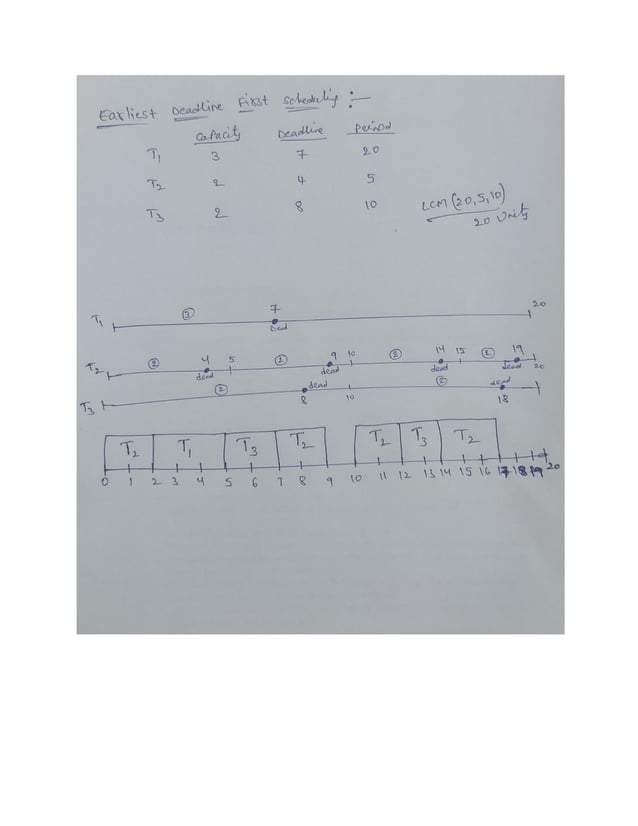 Earliest Deadline First Scheduling :-
Capacity Deadline Period
T1 3 7 20
T2 2 4 5
T3 2 8 10
LCM (20,5,10)
20 Units
T1 3 7 Dead 20
T2 2 4 dead 5 2 9 dead 10 2 14 dead 15 2 19 dead 20
T3 2 8 dead 10 2 18 dead
T2 T1 T3 T2 T2 T3 T2
0 1 2 3 4 5 6 7 8 9 10 11 12 13 14 15 16 17 18 19 20